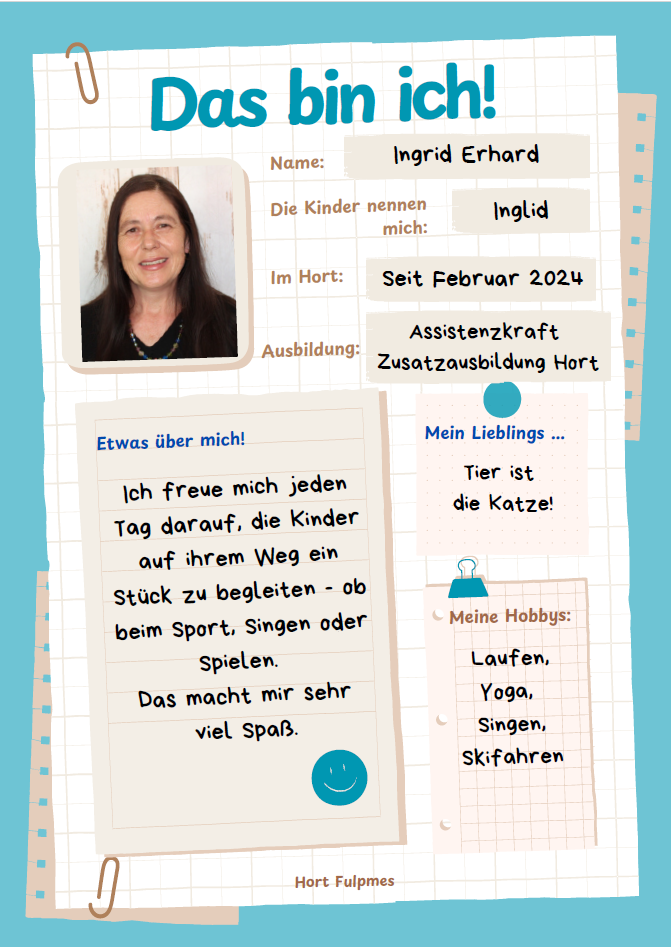 Das bin ich!
Name:
Ingrid Erhard
Die Kinder nennen
mich:
Inglid
Im Hort:
Seit Februar 2024
Ausbildung:
Assistenzkraft
Zusatzausbildung Hort
Etwas über mich!
Ich freue mich jeden
Tag darauf, die Kinder
auf ihrem Weg ein
Stück zu begleiten - ob
beim Sport, Singen oder
Spielen.
Das macht mir sehr
viel Spaß.
Mein Lieblings ...
Tier ist
die Katze!
Meine Hobbys:
Laufen,
Yoga,
Singen,
Skifahren
Hort Fulpmes